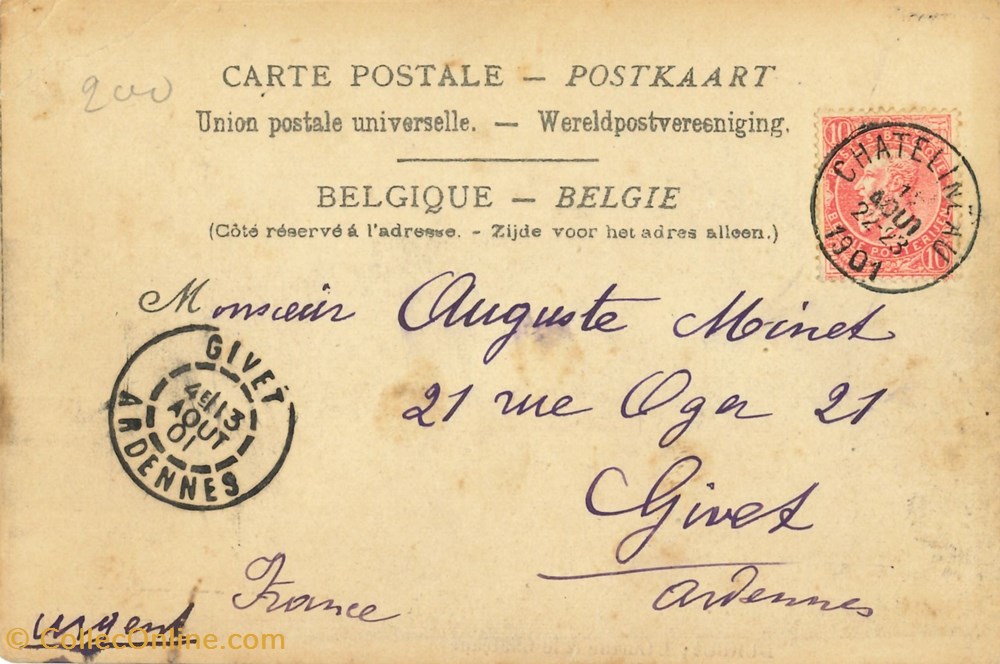 200
CARTE POSTALE — POSTKAART
Union postale universelle. — Wereldpostvereeniging.
BELGIQUE — BELGIE
(Côté réservé á l'adresse. - Zijde voor het adres alleen.)
10
10
CHATELINEAU
AOUT
22-23
1901
Monsieur Auguste Minet
21 rue Oger 21
Givet
Ardennes
France
urgent
GIVET
4E 13
AOUT
01
ARDENNES
© CollecOnline.com